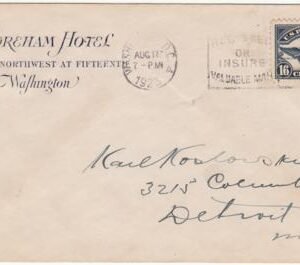 OREHAM HOTEL
NORTHWEST AT FIFTEENT
Washington
AUG 1
2-PM
192
OR
INSURE
VALUABLE MAIL
16
Karl Koslowsk
3215 Columb
Detroit